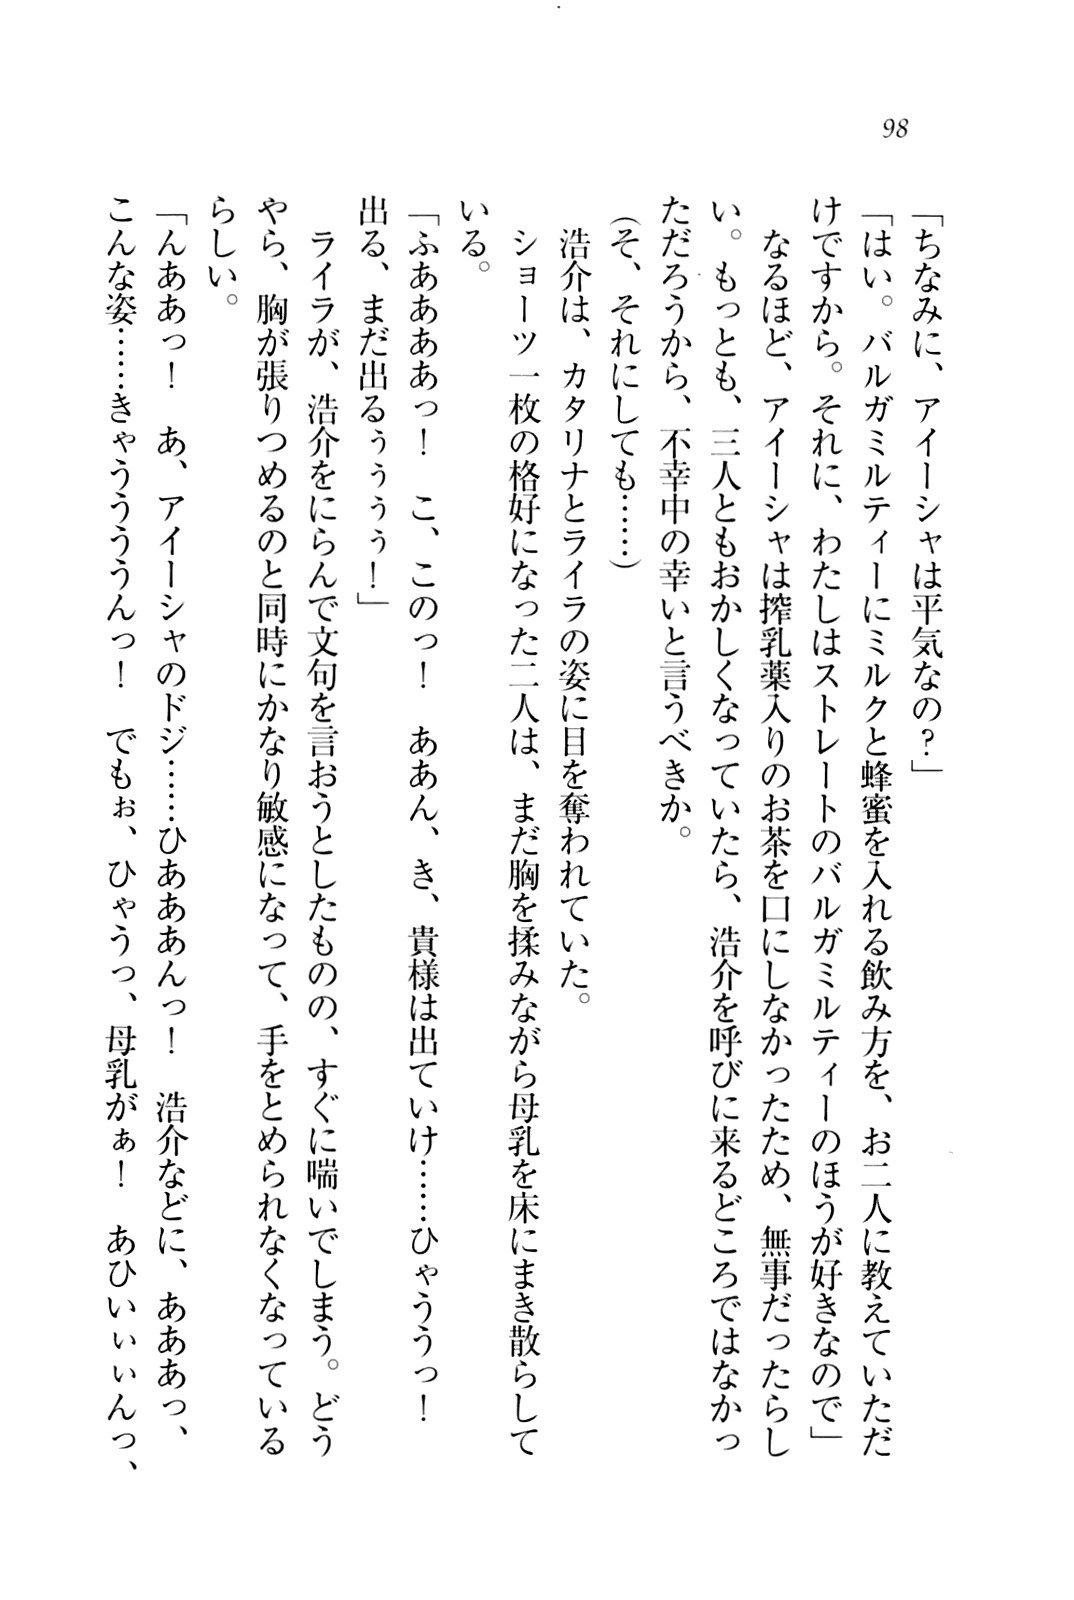 98
「ちなみに、アイーシャは平気なの？」
「はい。バルガミルティーにミルクと蜂蜜を入れる飲み方を、お二人に教えていただ
けですから。それに、わたしはストレートのバルガミルティーのほうが好きなので」
なるほど、アイーシャは搾乳薬入りのお茶を口にしなかったため、無事だったらし
い。もっとも、三人ともおかしくなっていたら、浩介を呼びに来るどころではなかっ
ただろうから、不幸中の幸いと言うべきか。
（そ、それにしても……）
浩介は、カタリナとライラの姿に目を奪われていた。
ショーツ一枚の格好になった二人は、まだ胸を揉みながら母乳を床にまき散らして
いる。
「ふああああっ！　こ、このっ！　ああん、き、貴様は出ていけ……ひゃううっ！
出る、まだ出るぅぅぅぅ！」
ライラが、浩介をにらんで文句を言おうとしたものの、すぐに喘いでしまう。どう
やら、胸が張りつめるのと同時にかなり敏感になって、手をとめられなくなっている
らしい。
「んああっ！　あ、アイーシャのドジ……ひあああんっ！　浩介などに、あああっ、
こんな姿……きゃうううんっ！　でもぉ、ひゃうっ、母乳がぁ！　あひいぃぃんっ、